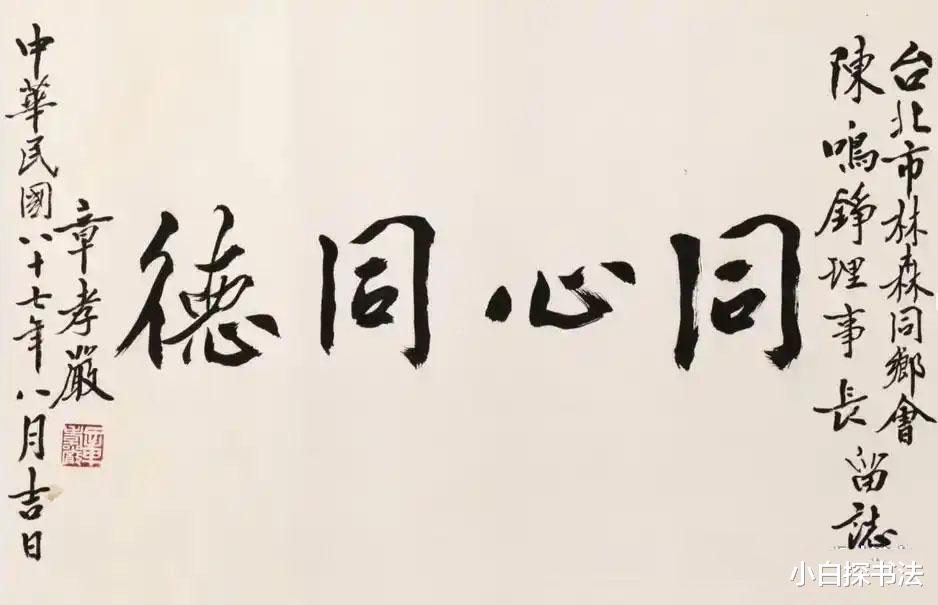 台北市林森同鄉會
陳鳴錚理事長留誌
同心同德
章孝嚴
中華民國八十七年八月吉日
章孝嚴
小白探书法